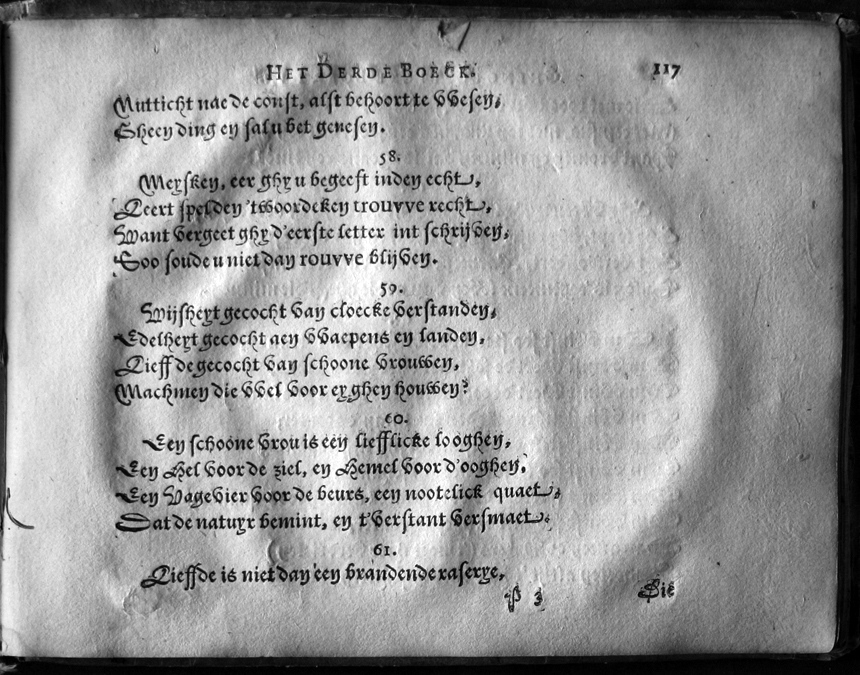 HET DERDE BOECK. 117
Mutticht nae de const, alst behoort te VVesen,
Gheen ding en sal u bet genesen.
58.
Meysken, eer ghy u begeeft inden echt,
Leert spelden 'twoordeken trouvve recht,
Want vergeet ghy d'eerste letter int schrijven,
Soo soude u niet dan rouvve blijven.
59.
Wijsheyt gecocht van cloecke verstanden,
Edelheyt gecocht aen VVaepens en landen,
Lieffde gecocht van schoone vrouwen,
Machmen die VVel voor eyghen houwen?
60.
Een schoone vrou is een liefflicke looghen,
Een Hel voor de ziel, en Hemel voor d'ooghen,
Een Vagevier voor de beurs, een nootelick quaet,
Dat de natuyr bemint, en t'verstant versmaet.
61.
Lieffde is niet dan een brandende raserye,
P 3 Die